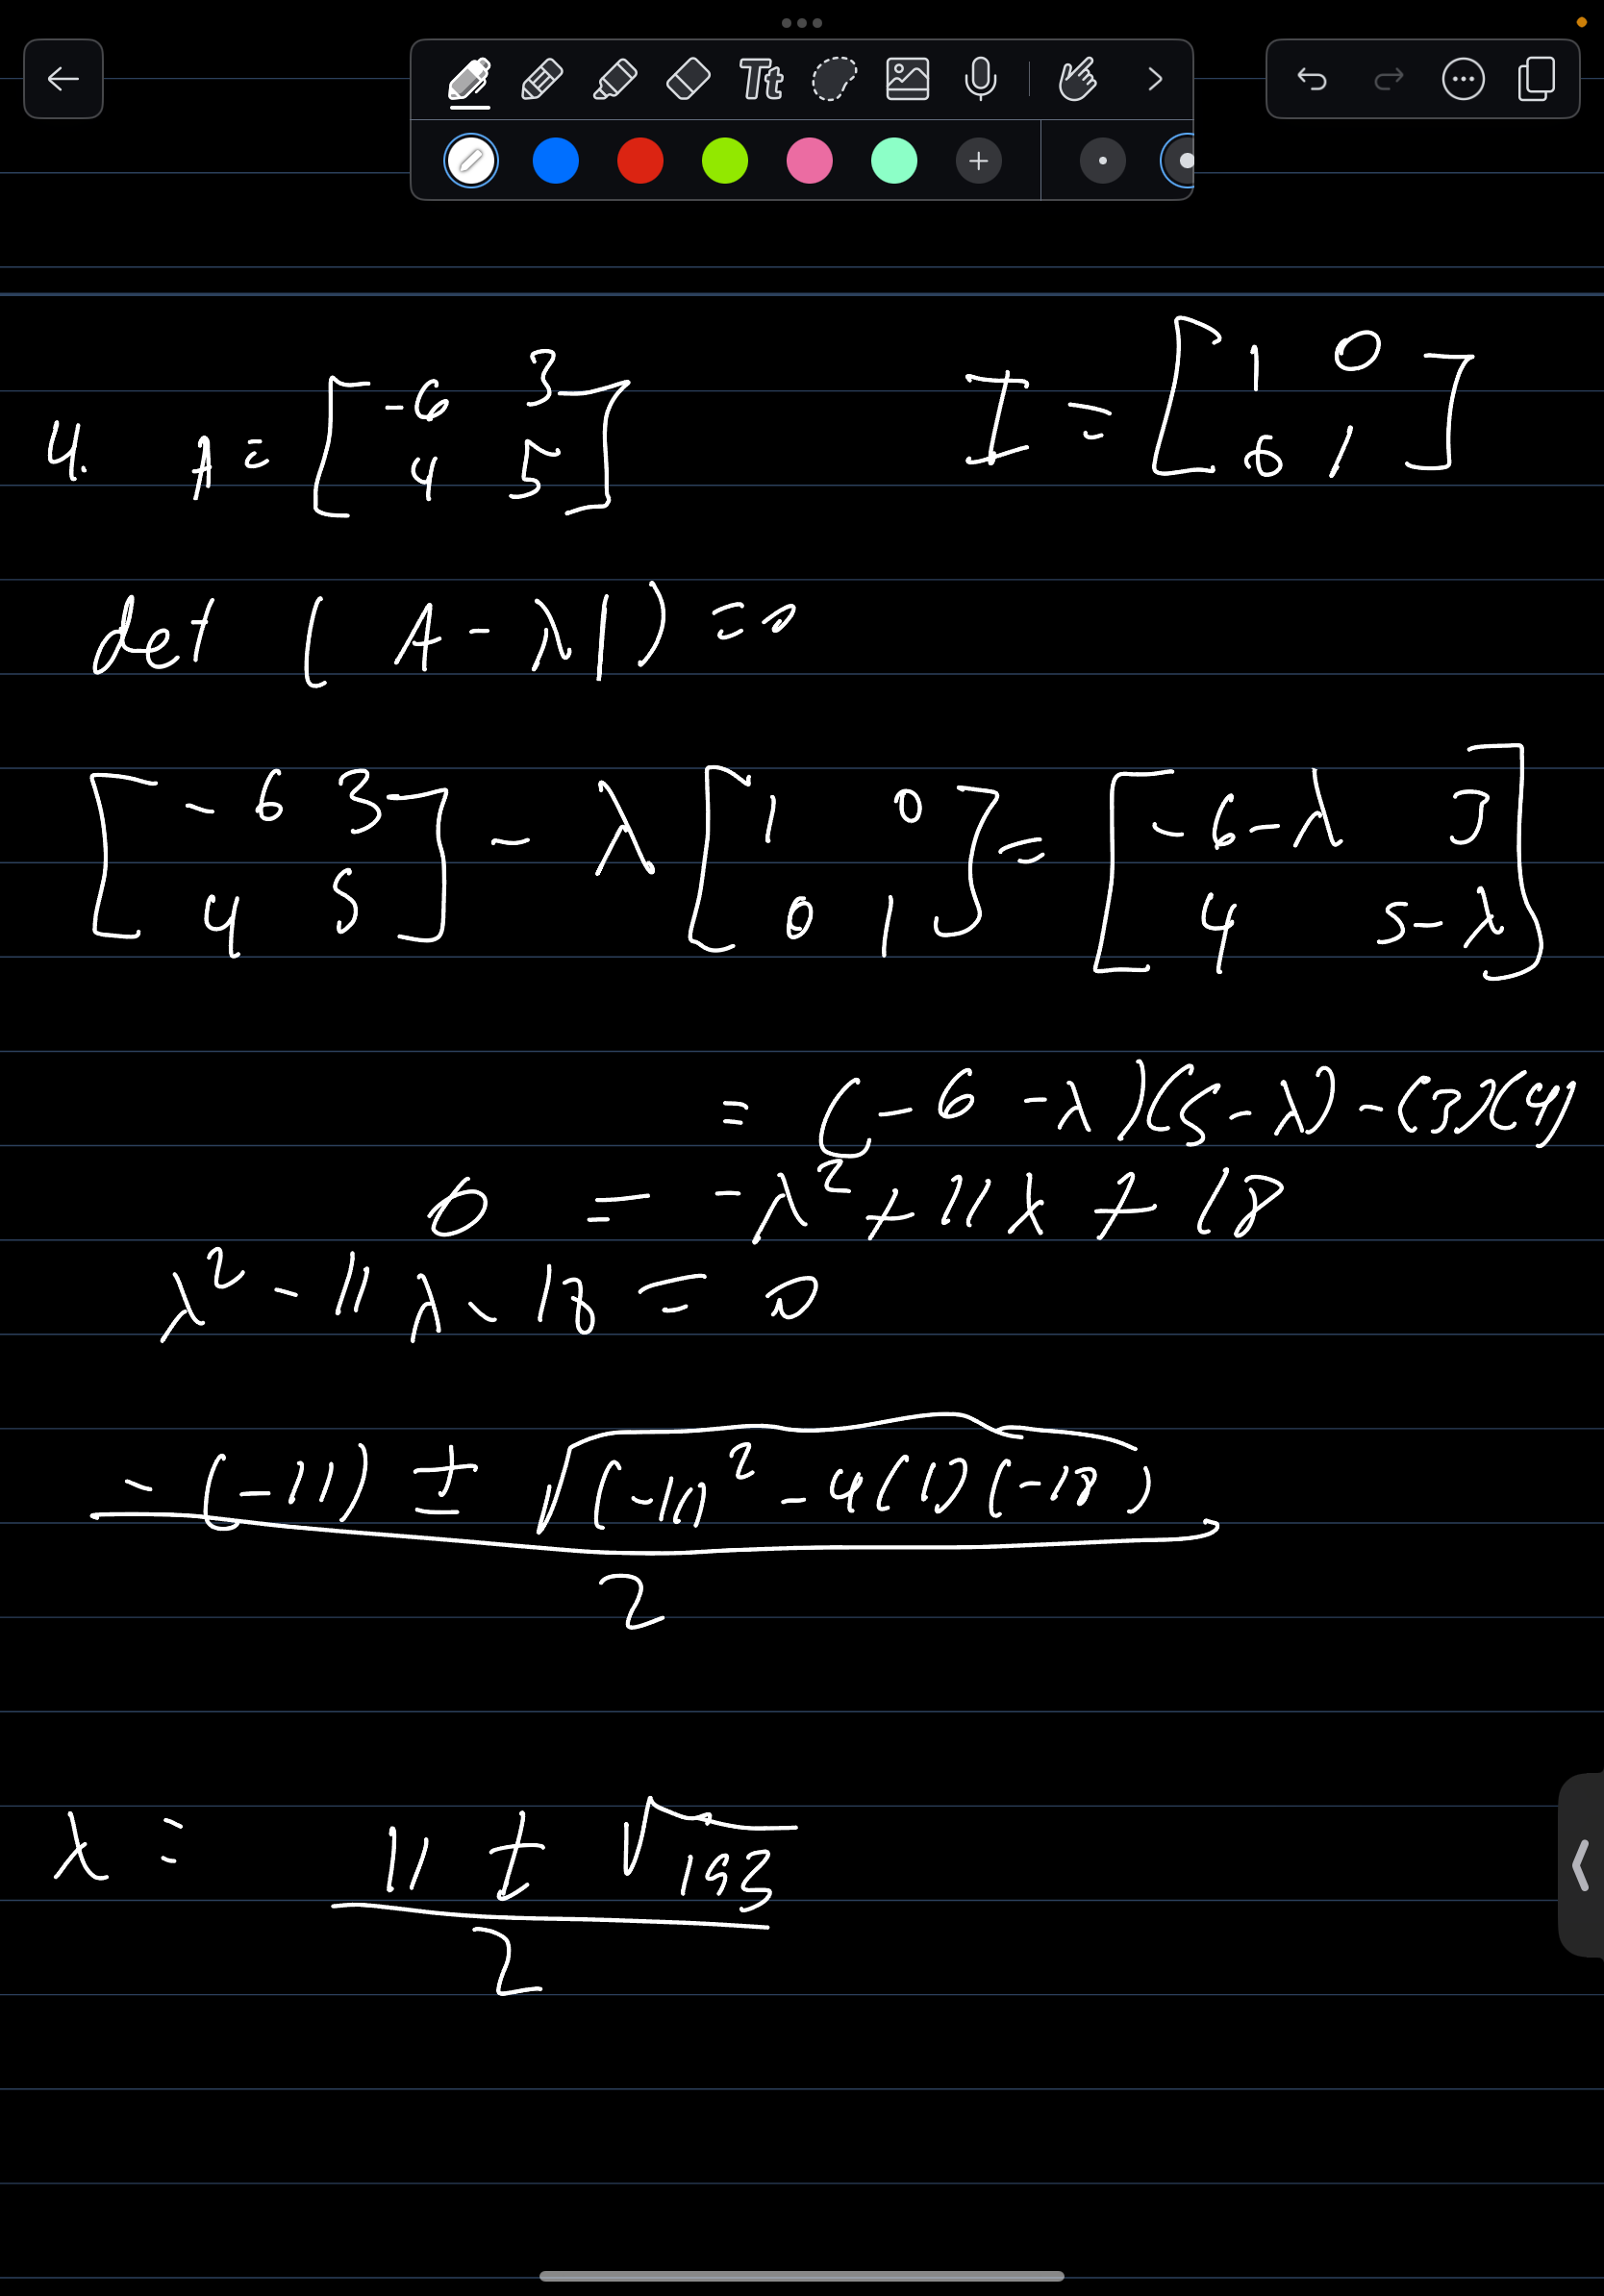 Tt
4. A = [-6 3; 4 5] I = [1 0; 0 1]
det (A - λI) = 0
[-6 3; 4 5] - λ [1 0; 0 1] = [-6-λ 3; 4 5-λ]
= (-6 -λ)(5-λ) - (3)(4)
0 = -λ² + 11λ + 18
λ² - 11λ - 18 = 0
-(-11) ± √((-11)² - 4(1)(-18))
2
λ = 11 ± √193
2